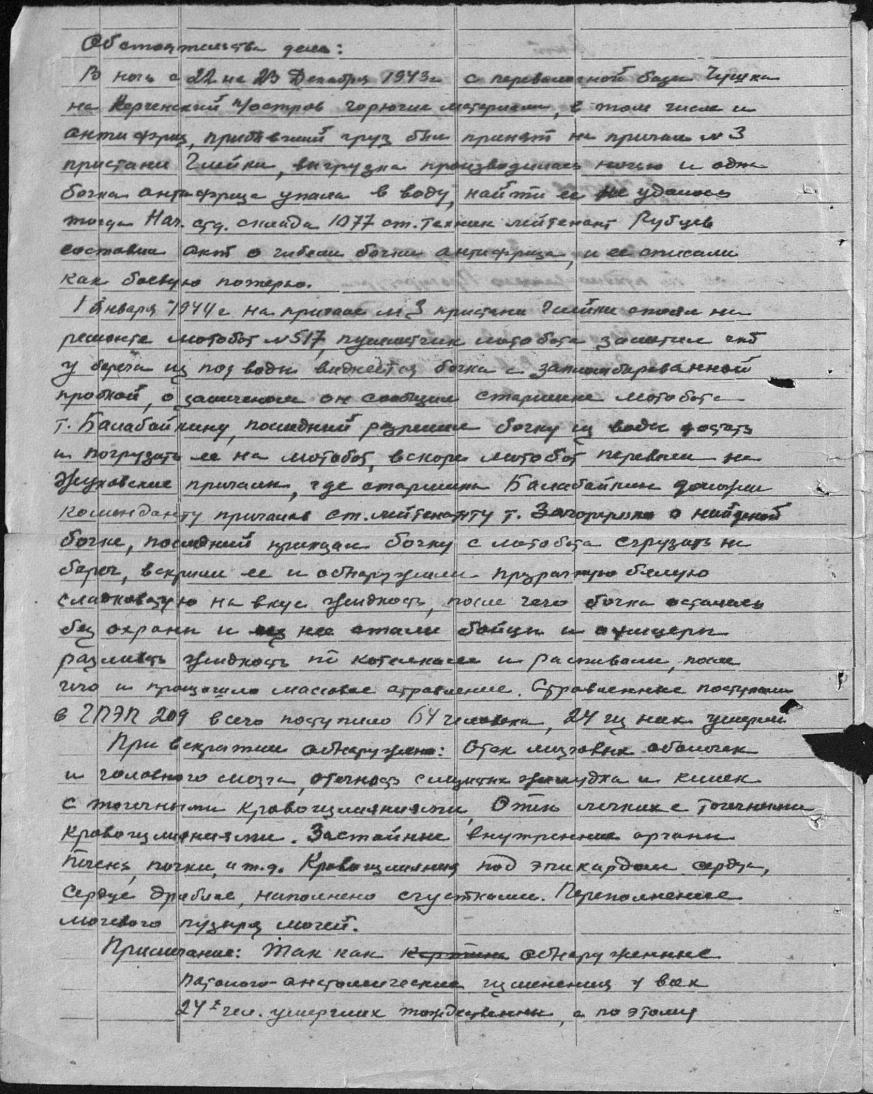 Обстоятельства дела:
В ночь с 22 на 23 Декабря 1943г с перевалочной базы Чушка
на Керченский п/остров горючие материалы, в том числе и
антифриз, прибывший груз был принят на причал №3
пристани Глейки, выгрузка производилась ночью и одна
бочка антифриза упала в воду, найти ее не удалось
тогда Нач. отд. склада 1077 ст. техник лейтенант Рубцев
составил акт о гибели бочки антифриза, и ее списали
как боевую потерю.
1 Января 1944г на причале №3 пристани Глейки стоял на
ремонте мотобот №517, пулеметчик мотобота заметил что
у берега из под воды виднеется бочка с запломбированной
пробкой, о замеченом он сообщил старшине мотобота
т. Балабайкину, последний разрешил бочку из воды достать
и погрузить ее на мотобот, вскоре мотобот перевели на
Жуковские причалы, где старшина Балабайкин доложил
коменданту причалов ст. лейтенанту т. о найденой
бочке, последний приказал бочку с мотобота сгрузить на
берег, вскрыли ее и обнаружили прозрачную белую
сладковатую на вкус жидкость, после чего бочка осталась
без охраны и из нее стали бойцы и офицеры
разливать жидкость по котелкам и распивали, после
чего и произошло массовое отравление. Отравленные поступали
в ГПЭП 209 всего поступило 64 человека, 24 из них умерли
При вскрытии обнаружено: Отек мозговых оболочек
и головного мозга, отечность слизистых желудка и кишек
с точечными кровоизлияниями, Отек легких с точечными
кровоизлияниями. Застойные внутренние органы
печень, почки, и т.д. Кровоизлияния под эпикардом сердца,
сердце дряблое, наполнено сгустками. Переполнение
мочевого пузыря мочей.
Примечание: Так как картина обнаруженные
патолого-анатомические изменения у всех
24х чел. умерших тождественны, а поэтому